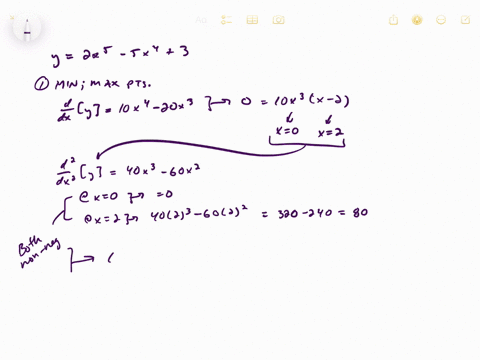 y = 2x⁵ - 5x⁴ + 3
① MIN; MAX PTS.
d/dx [y] = 10x⁴ - 20x³ } → 0 = 10x³(x-2)
x=0 x=2
d²/dx² [y] = 40x³ - 60x²
@ x=0 } → =0
@ x=2 } → 40(2)³ - 60(2)² = 320 - 240 = 80
Both non-neg } → (